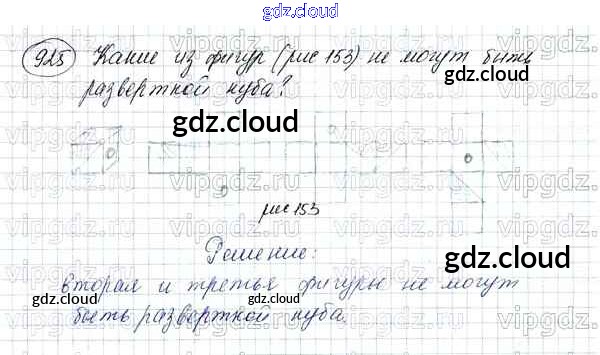 gdz.cloud
925 Какие из фигур (рис 153) не могут быть
gdz.cloud
разверткой куба?
gdz.cloud
gdz.cloud
gdz.cloud
рис 153
Решение:
gdz.cloud
вторая и третья фигуры не могут
gdz.cloud
gdz.cloud
быть разверткой куба.
gdz.cloud